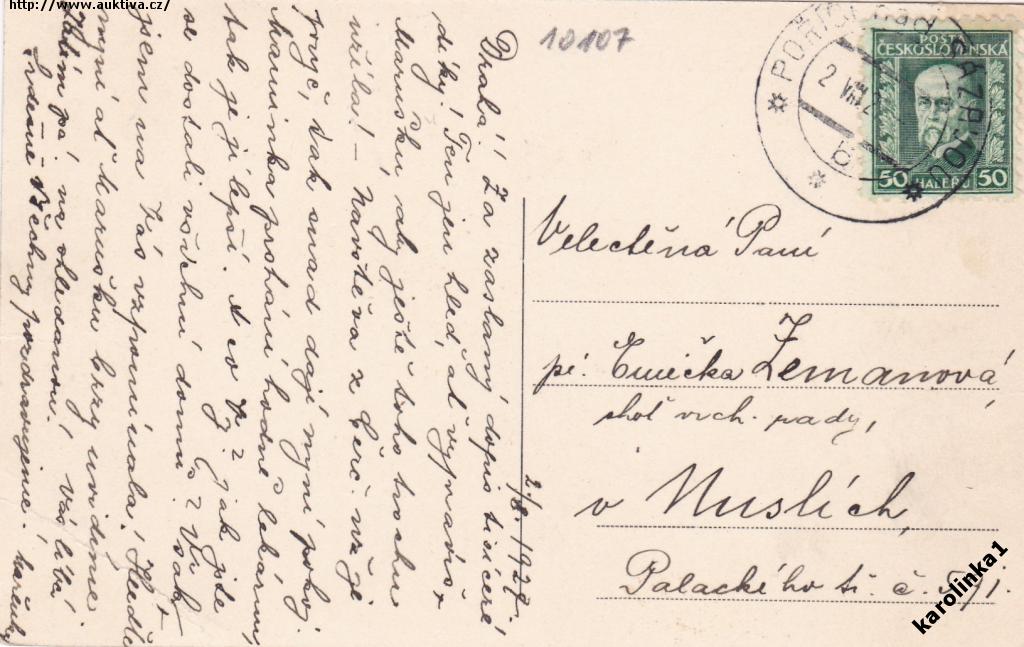 http://www.auktiva.cz/
10107
POŠTA
ČESKOSLOVENSKÁ
50 HALÉŘŮ 50
SÁZAVOU
2 VIII 2
b
Drahá! Za zaslaný dopis tisíceré
díky! Ten jen hleď, ať vypravíš
Marušku aby ještě toho trochu
užila! – Návštěva z
pryč, tak snad dají nyní pokoj.
Maminka prohání hodně lékárnu,
tak je jí lepší. A co Ty? jak jste
se dostali všichni domů?
jsem na Vás vzpomínala! Hleďte
nyní ať Marušku brzy uvidíme
Zatím pá! na shledanou! Vás líbá
Srdečně všechny pozdravujeme!
2/8. 1927.
Velectěná Paní
pí. Emička Zemanová
choť vrch. rady,
v Nuslích,
Palackého tř. č.
karolinka1